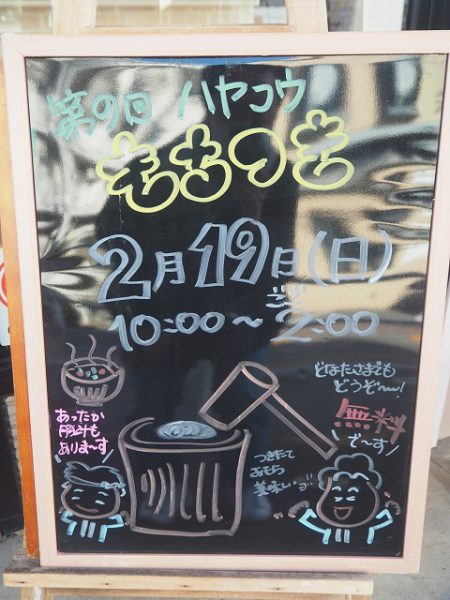 第9回 ハヤコウ
もちつき
2月19日(日)
10:00～ごご2:00
どなたさまでも
どうぞ〜!
無料
で〜す
あったか
豚汁も
ありま〜す
つきたて
おもち
美味い・ヨ!!